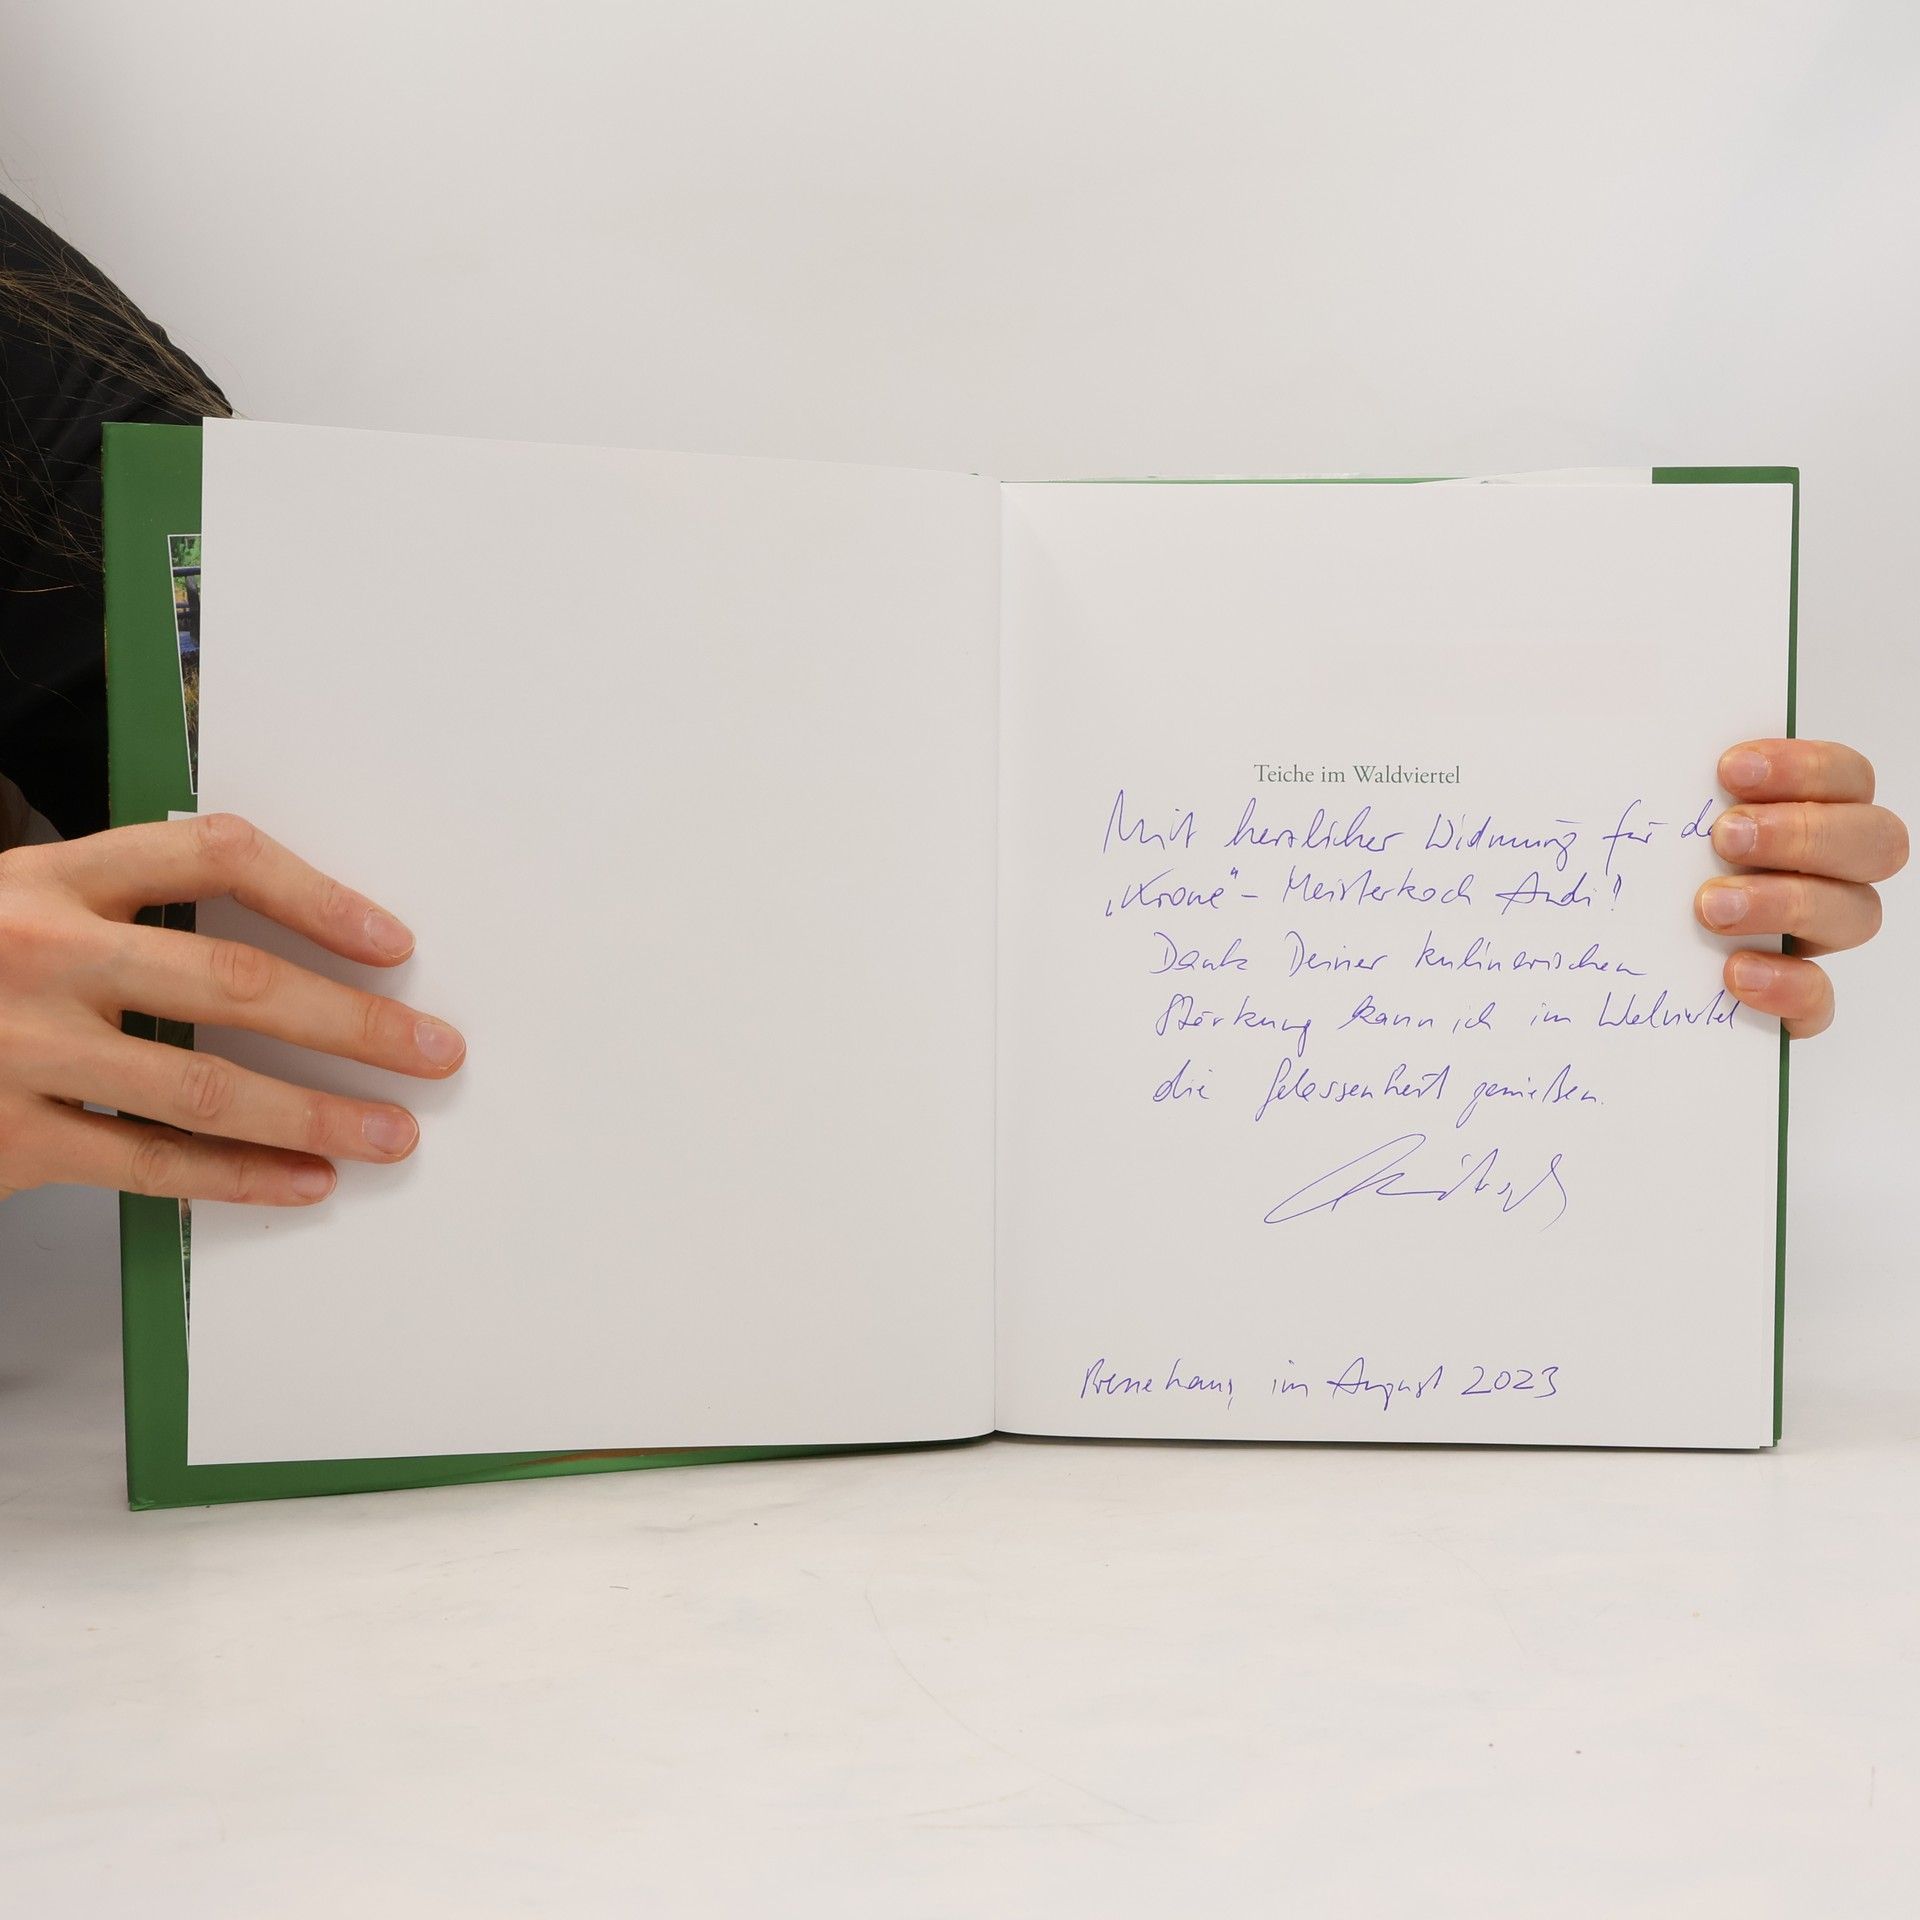 Teiche im Waldviertel
Mit herzlicher Widmung für de
„Krone“ - Meisterkoch Andi!
Dank Deiner kulinarischen
Stärkung kann ich im Waldviertel
die Gelassenheit genießen.
Pressehaus, im August 2023